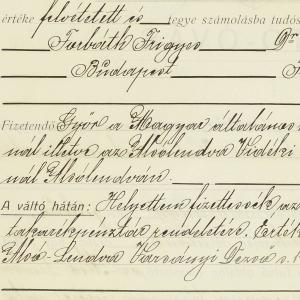 értéke felvétetett és jegye számolásba tudós
Forbáth Frigyes Dr
Budapest
Fizetendő Győr a Magyar általános
nál illetve az Alsólendva Vidéki
nál Alsólendván.
A váltó hátán: Helyettem fizettessék az
takarékpénztár rendeletére. Érték
Alsó-Lendva Varsányi Dezső s. k.